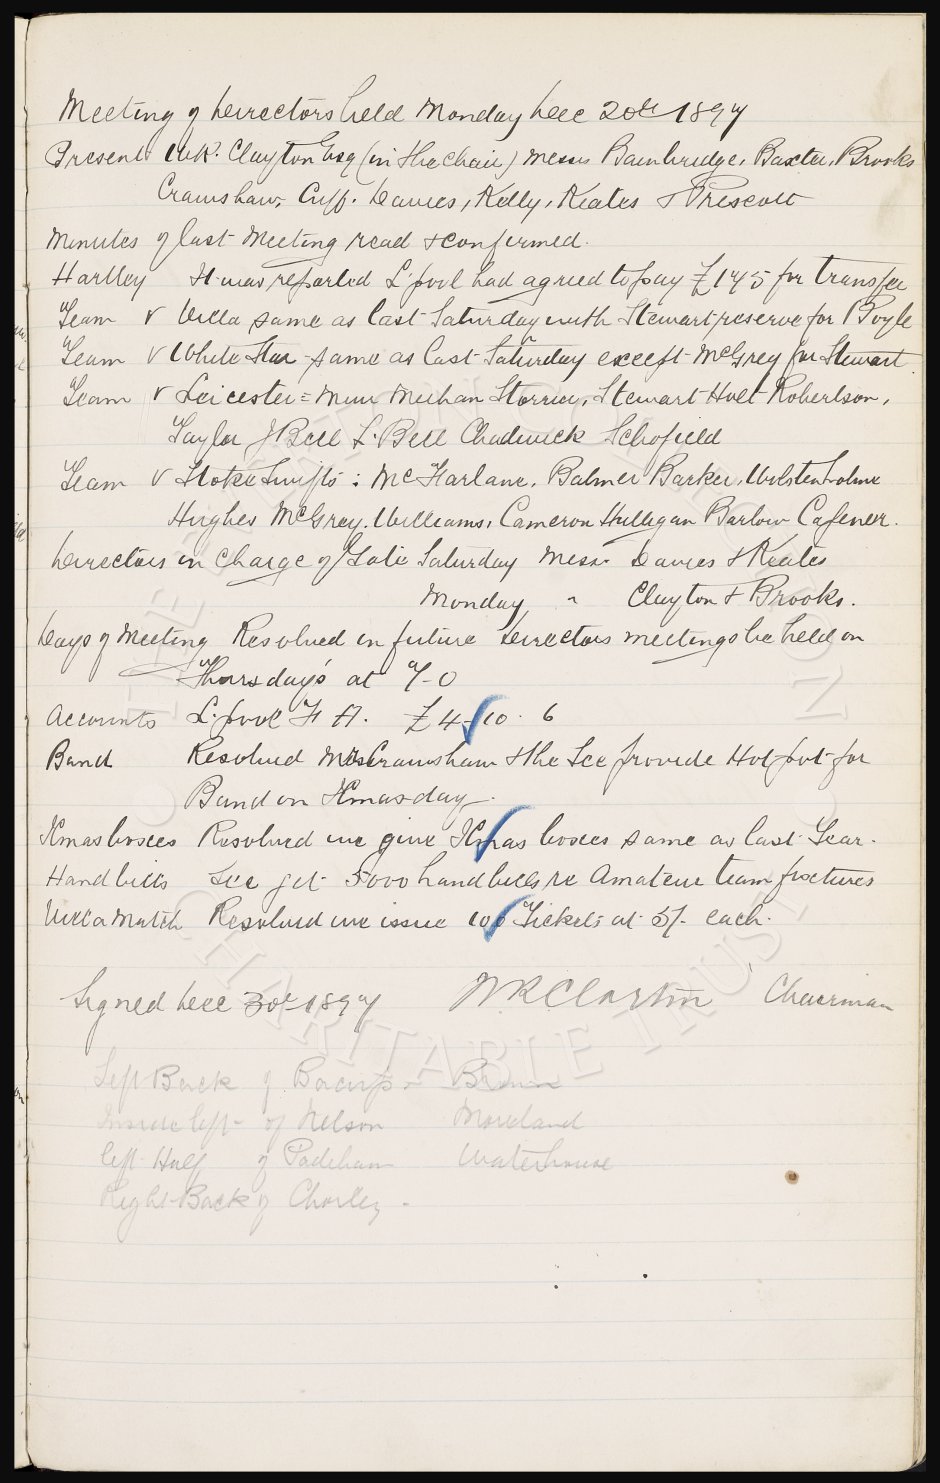 Meeting of Directors held Monday Dec 20th 1897
Present W.R. Clayton Esq (in the Chair) Messrs Bainbridge, Baxter, Brooks
Cramshaw, Cuff, Davies, Kelly, Keates & Prescott
Minutes of last Meeting read & confirmed.
Hartley It was reported L'pool had agreed to pay £175 for transfer
Team V Villa same as last Saturday with Stewart reserve for Boyle
Team V White Star same as last Saturday except McGrey for Stewart.
Team V Leicester = Muir Meehan Storrier, Stewart Holt Robertson,
Taylor J Bell L. Bell Chadwick Schofield
Team V Stoke Swifts : McFarlane, Balmer Barker, Wolstenholme
Hughes McGrey, Williams, Cameron Hulligan Barlow Cafener.
Directors in charge of Gate Saturday Messrs Davies & Keates
Monday " Clayton & Brooks.
Days of Meeting Resolved in future Directors meetings be held on
Thursday's at 7-0
Accounts L.pool F A. £4-10. 6
Band Resolved Mr Cramshaw & the Sec provide Hot pot for
Band on Xmas day.
Xmas boxes Resolved we give Xmas boxes same as last Year.
Handbills Sec get 5000 handbills re Amateur team fixtures
Villa Match Resolved we issue 100 Tickets at 5/- each.
Signed Dec 30th 1897 W R Clayton Chairman
Left Back of Bacup -
Inside left - of Nelson Moreland
left Half of Padiham Waterhouse
Right Back of Chorley -
CHARITABLE TRUST